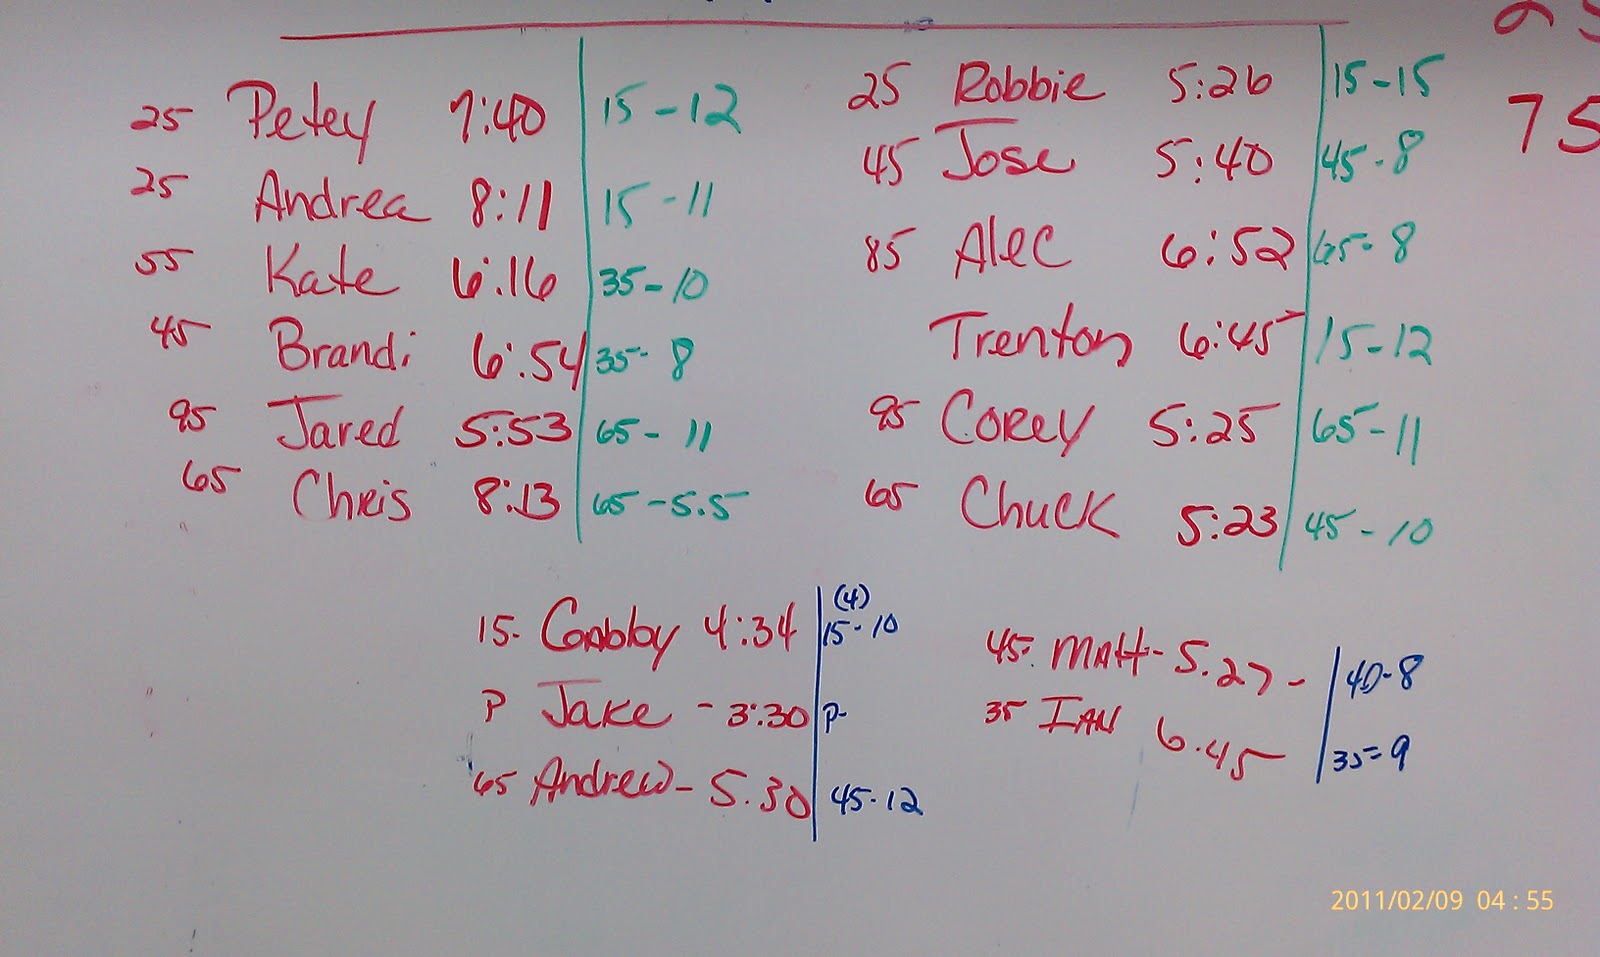 25 Petey 7:40 15-12
25 Andrea 8:11 15-11
55 Kate 6:16 35-10
45 Brandi 6:54 35-8
95 Jared 5:53 65-11
65 Chris 8:13 65-5.5
25 Robbie 5:26 15-15
45 Jose 5:40 45-8
85 Alec 6:52 65-8
Trenton 6:45 15-12
95 Corey 5:25 65-11
65 Chuck 5:23 45-10
75
(4)
15- Gabby 4:34 15-10
P Jake - 3:30 P-
65 Andrew - 5.30 45-12
45- Matt - 5.27 - 40-8
35 Ian 6.45 35=9
2011/02/09 04:55